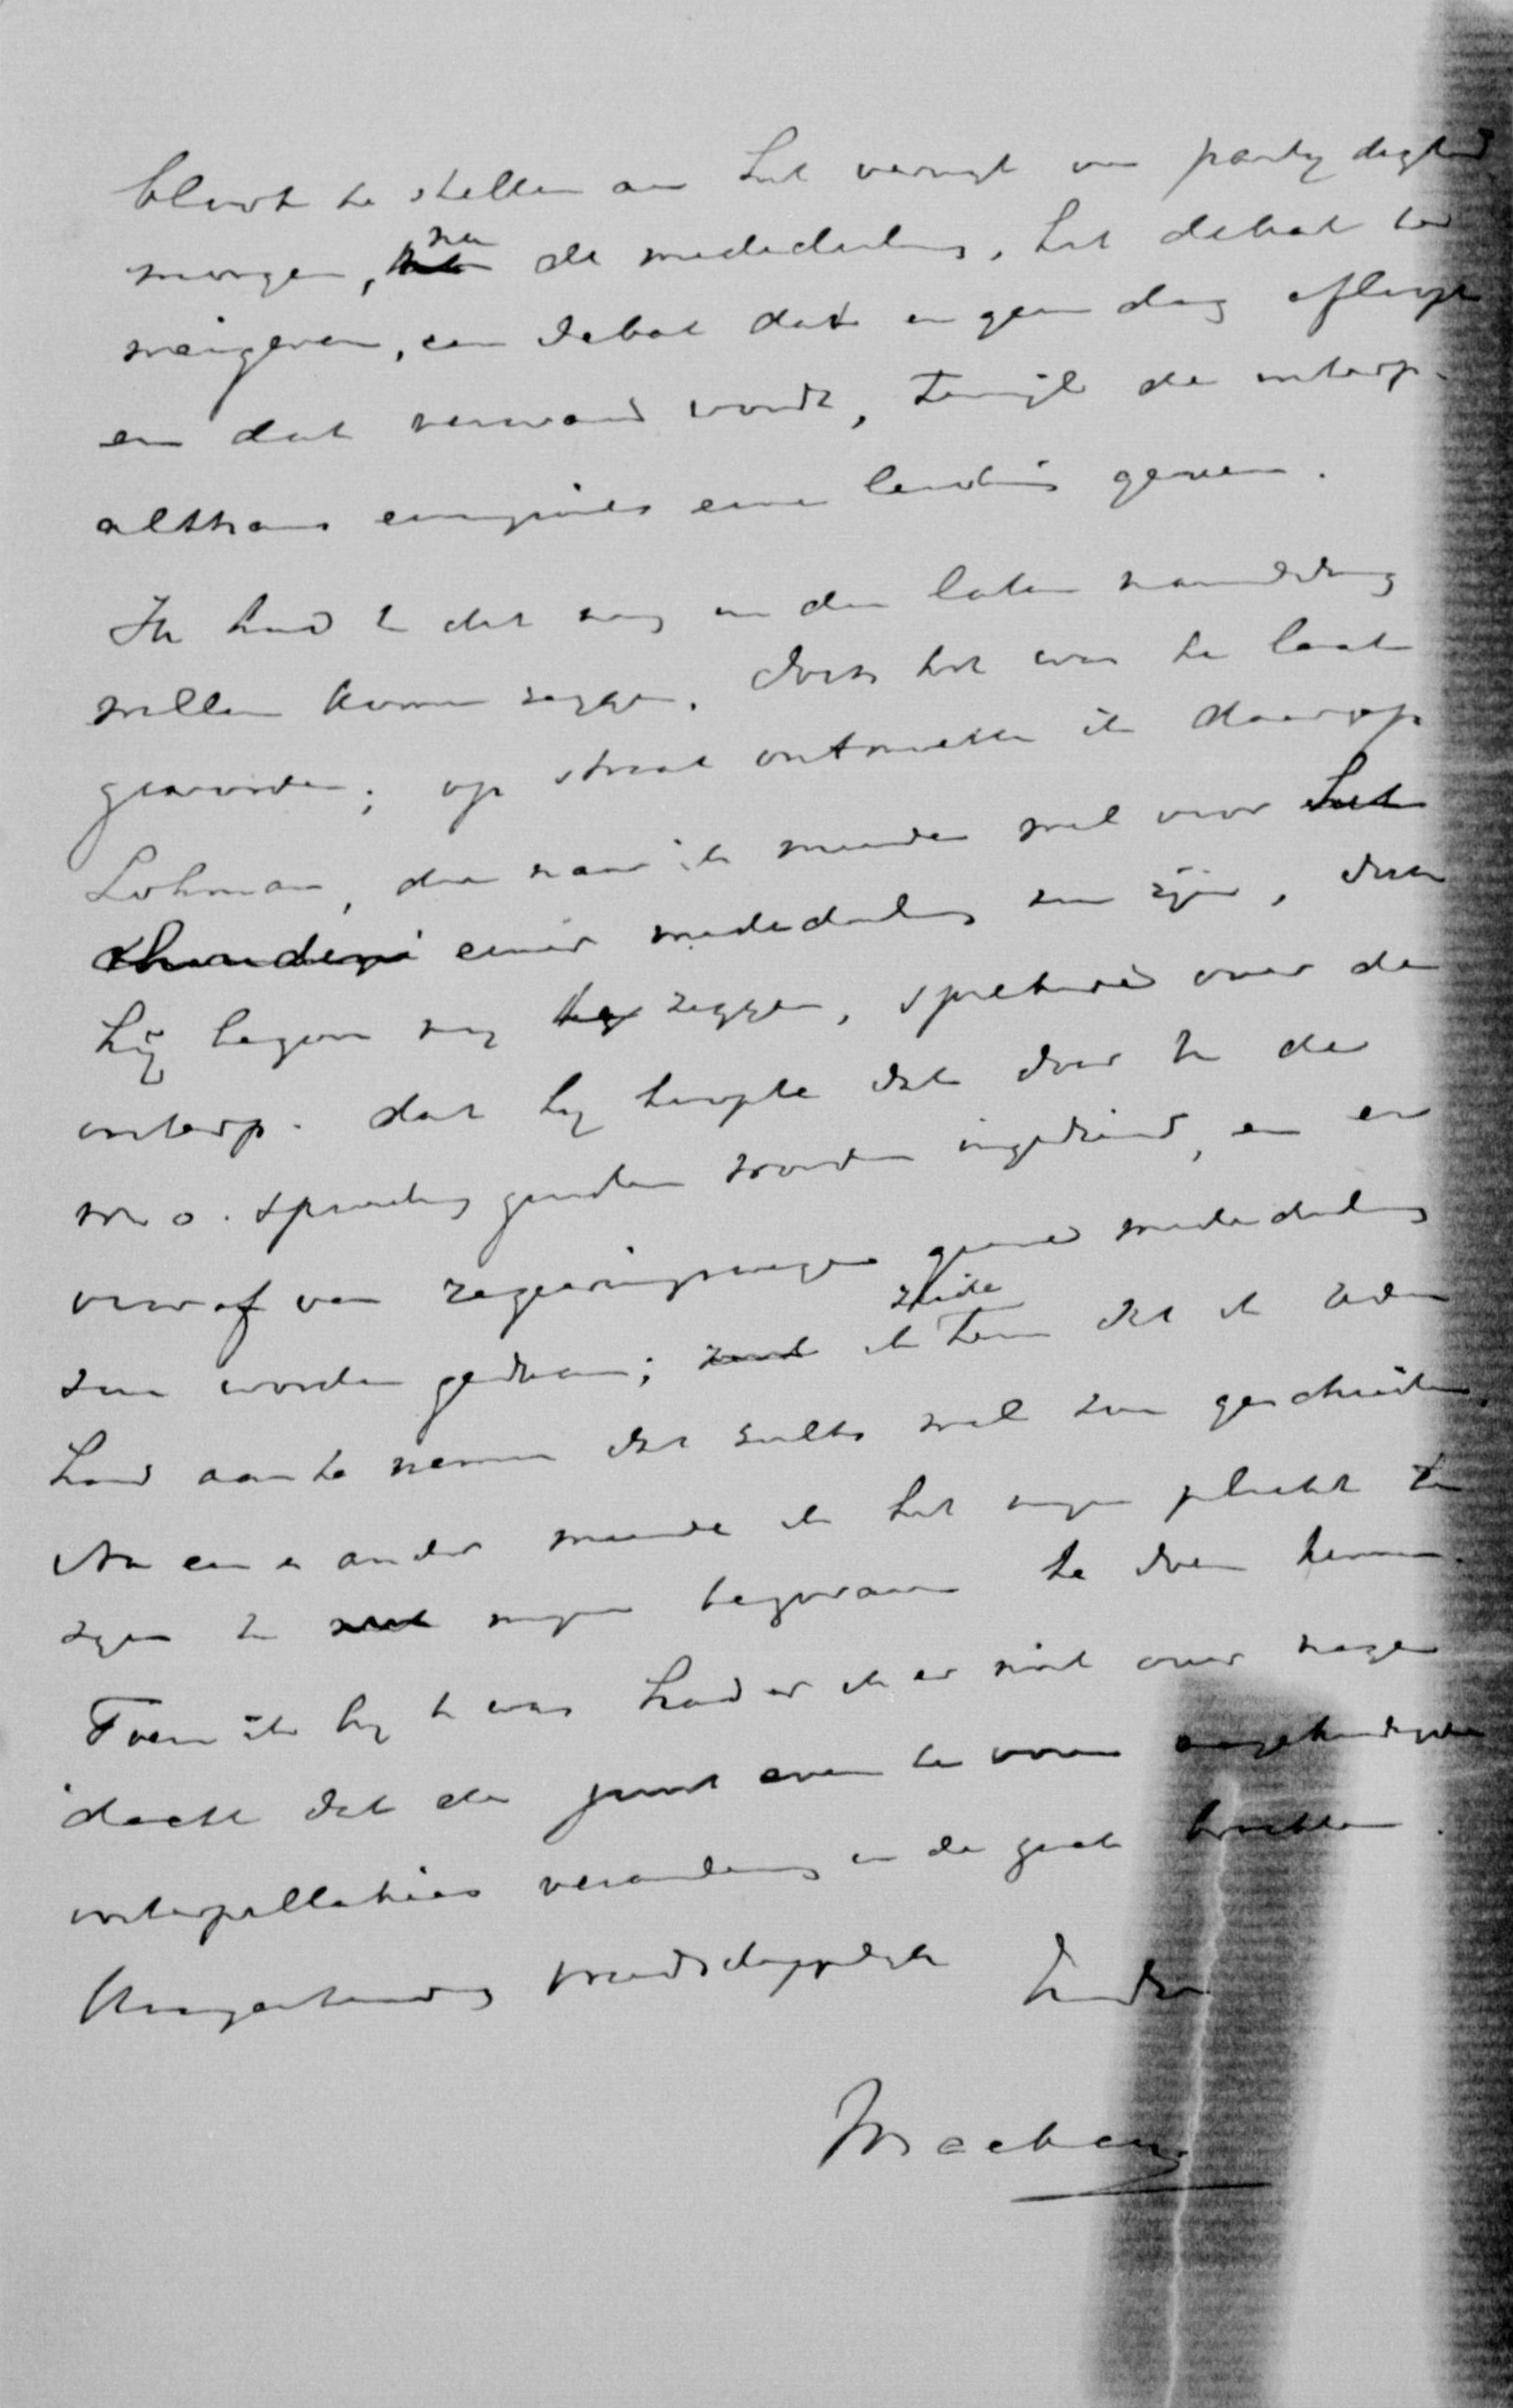 bloot te stellen aan het verwijt van partijdigheid
morgen, na de mededeeling, het debat te
weigeren, een debat dat in geen dag afloopt
en dat verward wordt, terwijl de interp.
althans eenigzins eene leiding geven.
Ik had U dat nog in den laten namiddag
willen komen zeggen. Doch het was te laat
geworden; op straat ontmoette ik daarop
Lohman, die naar ik meende wel voor het
eener mededeeling zou zijn, doch
hij begon mij te zeggen, sprekende over de
interp. dat hij hoopte dat door U de
m.o. spoedig zouden worden ingediend, en er
vooraf van regeeringswege geene mededeeling
zou worden gedaan; zeide ik hem dat ik reden
had aan te nemen dat zulks wel zou geschieden.
Na een en ander meende ik het mijn plicht te
zijn U mijn bezwaren te doen kennen.
Toen ik bij U was had ik er niet over nage
dacht dat de juist even te voren aangekondigde
interpellaties verandering in de zaak brachten.
Hoogachtend vriendschappelijk
Mackay